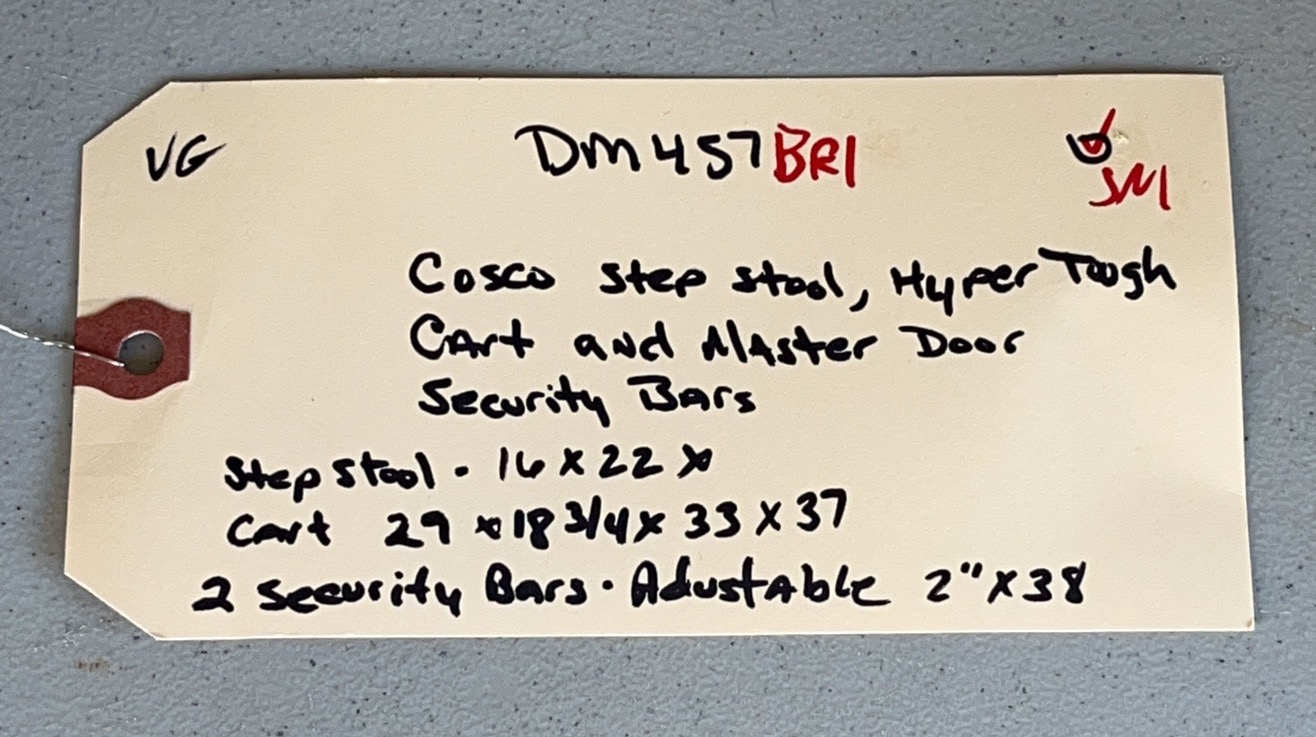 VG DM457BR1
SM
Cosco Step Stool, Hyper Tough
Cart and Master Door
Security Bars
Step Stool - 16 x 22 x
Cart 29 x 18 3/4 x 33 x 37
2 Security Bars - Adustable 2" x 38